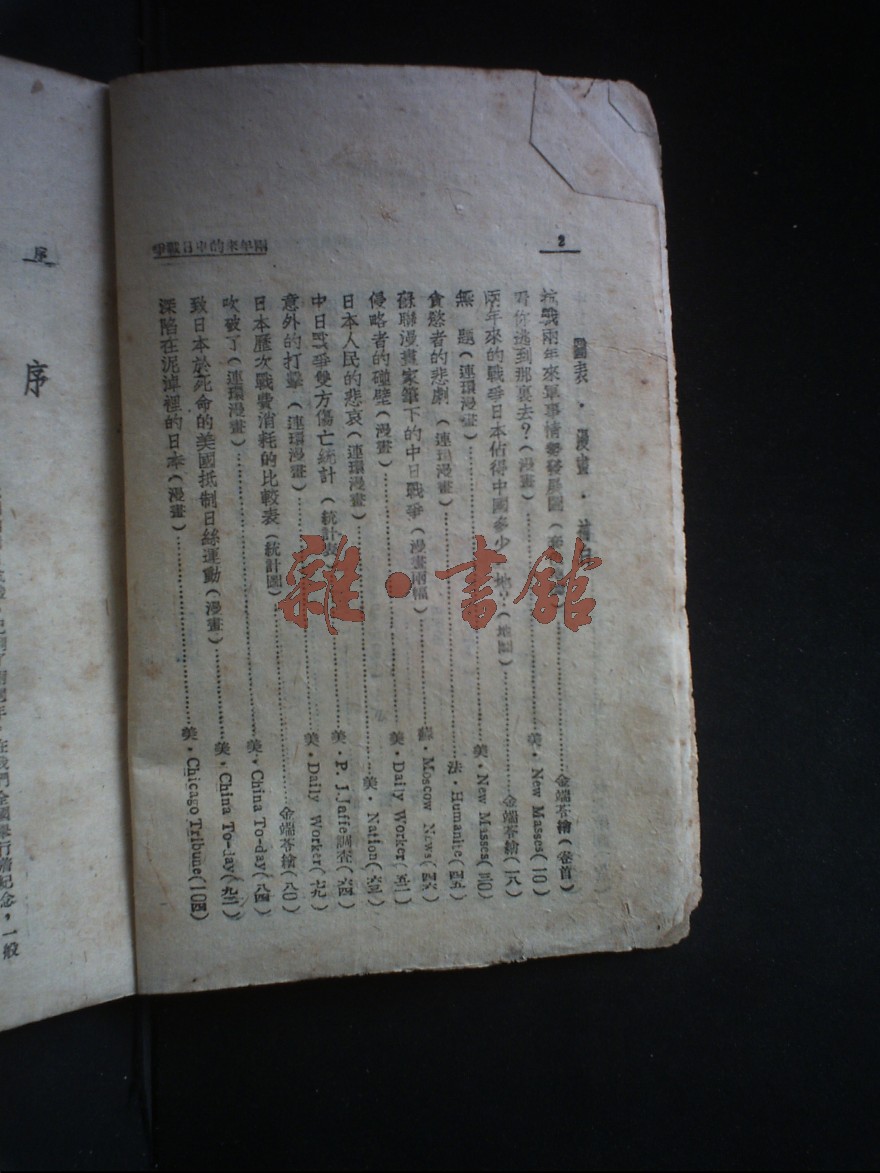 2
兩年來的中日戰爭
圖表・漫畫・
抗戰兩年來軍事情勢發展圖(金端苓繪(卷首)
看你逃到那裏去?(漫畫)美・New Masses(10)
兩年來的戰爭日本佔得中國多少土地?(地圖)金端苓繪(一八)
無 題(連環漫畫)美・New Masses(四0)
貪慾者的悲劇(連環漫畫)法・Humanite
蘇聯漫畫家筆下的中日戰爭(漫畫兩幅)蘇・Moscow News
侵略者的碰壁(漫畫)美・Daily Worker
日本人民的悲哀(連環漫畫)美・Nation
中日戰爭雙方傷亡統計(統計表)美・P. J. Jaffe調製(六四)
意外的打擊(連環漫畫)美・Daily Worker(七九)
日本歷次戰費消耗的比較表(統計圖)金端苓繪(八0)
吹破了(連環漫畫)美・China To-day(八四)
致日本於死命的美國抵制日絲運動(漫畫)美・China To-day
深陷在泥淖裡的日本(漫畫)美・Chicago Tribune(10四)
序
序
在我們全國舉行着紀念,一般
雜・書館